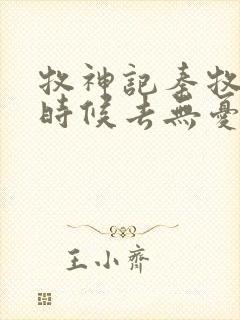 牧神記秦牧
時候去無憂
王小齊